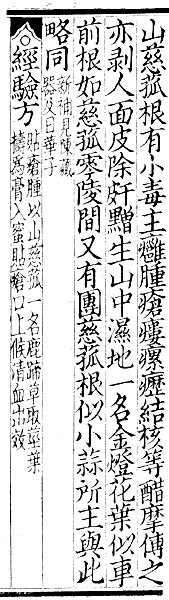 山慈菰根有小毒主癰腫瘡瘻瘰癧結核等醋摩傅之
亦剥人面皮除皯䵳生山中濕地一名金燈花葉似車
前根如慈菰零陵間又有團慈菰根似小蒜所主與此
略同
新補見陳藏
器及日華子
經驗方
貼瘡腫以山慈菰一名鹿蹄草取莖葉
擣爲膏入蜜貼瘡口上候清血出效